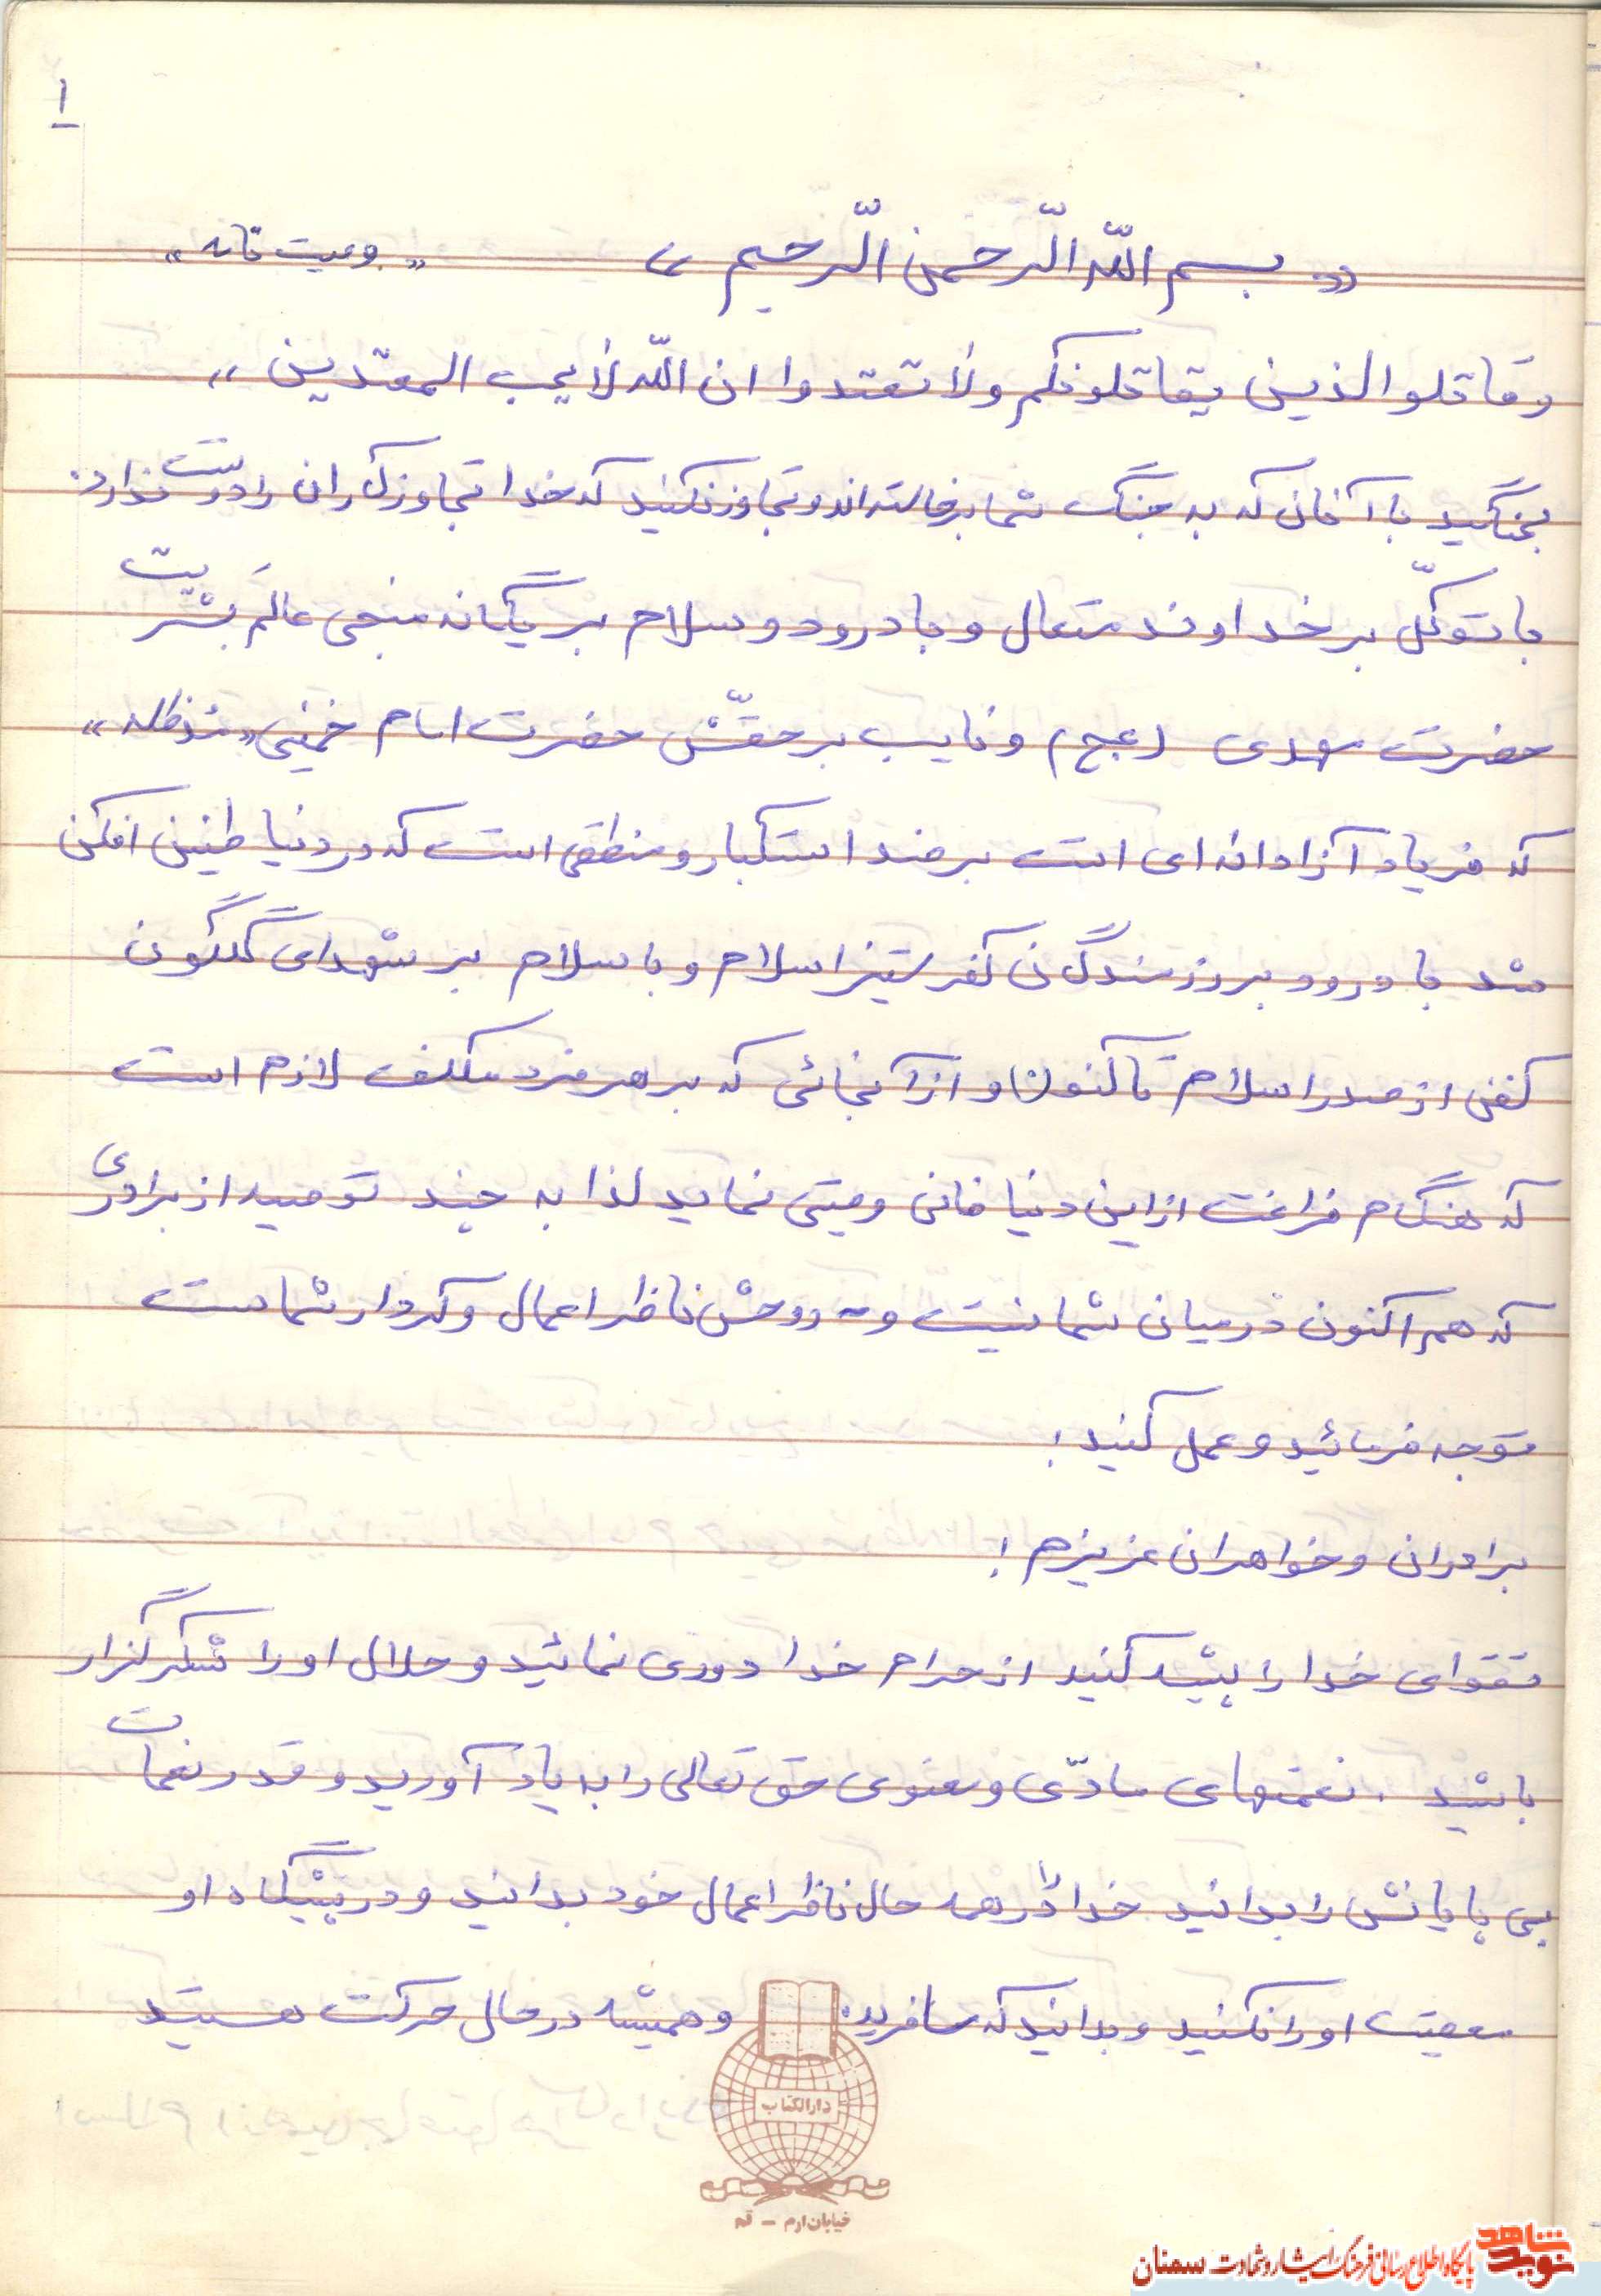 ۱
«بسم اللّه الرّحمن الرّحیم» «وصیت نامه»
وقاتلوا الذین یقاتلونکم ولا تعتدوا ان اللّه لا یحب المعتدین»
بجنگید با آنانی که به جنگ شما برخاسته‌اند و تجاوز نکنید که خدا تجاوزگران را دوست ندارد.
با توکّل بر خداوند متعال و با درود و سلام بر یگانه منجی عالَم بشریّت
حضرت مهدی (عج) و نایب بر حقّش حضرت امام خمینی «مُدظله»
که فریاد آزادانه‌ای است بر ضد استکبار و منطقی است که در دنیا طنین افکن
شد با درود بر رزمندگان کفر ستیز اسلام و با سلام بر شهدای گلگون
کفن از صدر اسلام تا کنون و از آنجائی که بر هر فرد مکلف لازم است
که هنگام فراغت از این دنیا فانی وصیتی نماید لذا به چند توصیه از برادری
که هم اکنون در میان شما نیست و روحش ناظر اعمال و کردار شماست
توجه فرمائید و عمل کنید:
برادران و خواهران عزیزم!
تقوای خدا را پیشه کنید از حرام خدا دوری نمائید و حلال او را شکرگزار
باشید. نعمتهای مادّی و معنوی حق تعالی را به یاد آورید و قدر نعمات
بی پایانش را بدانید خدا را در همه حال ناظر اعمال خود بدانید و در پیشگاه او
معصیت او را نکنید و بدانید که مسافرید. و همیشه در حال حرکت هستید
دارالکتاب
خیابان ارم – قم
نوید شاهد
پایگاه اطلاع رسانی فرهنگ ایثار و شهادت سمنان